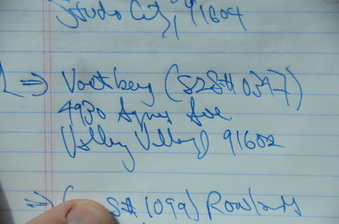 Studio City, 91604
⇒ (S28# 0347)
4930 Agnes Ave
Valley Village 91602
⇒ ( S# 1099) Rowland